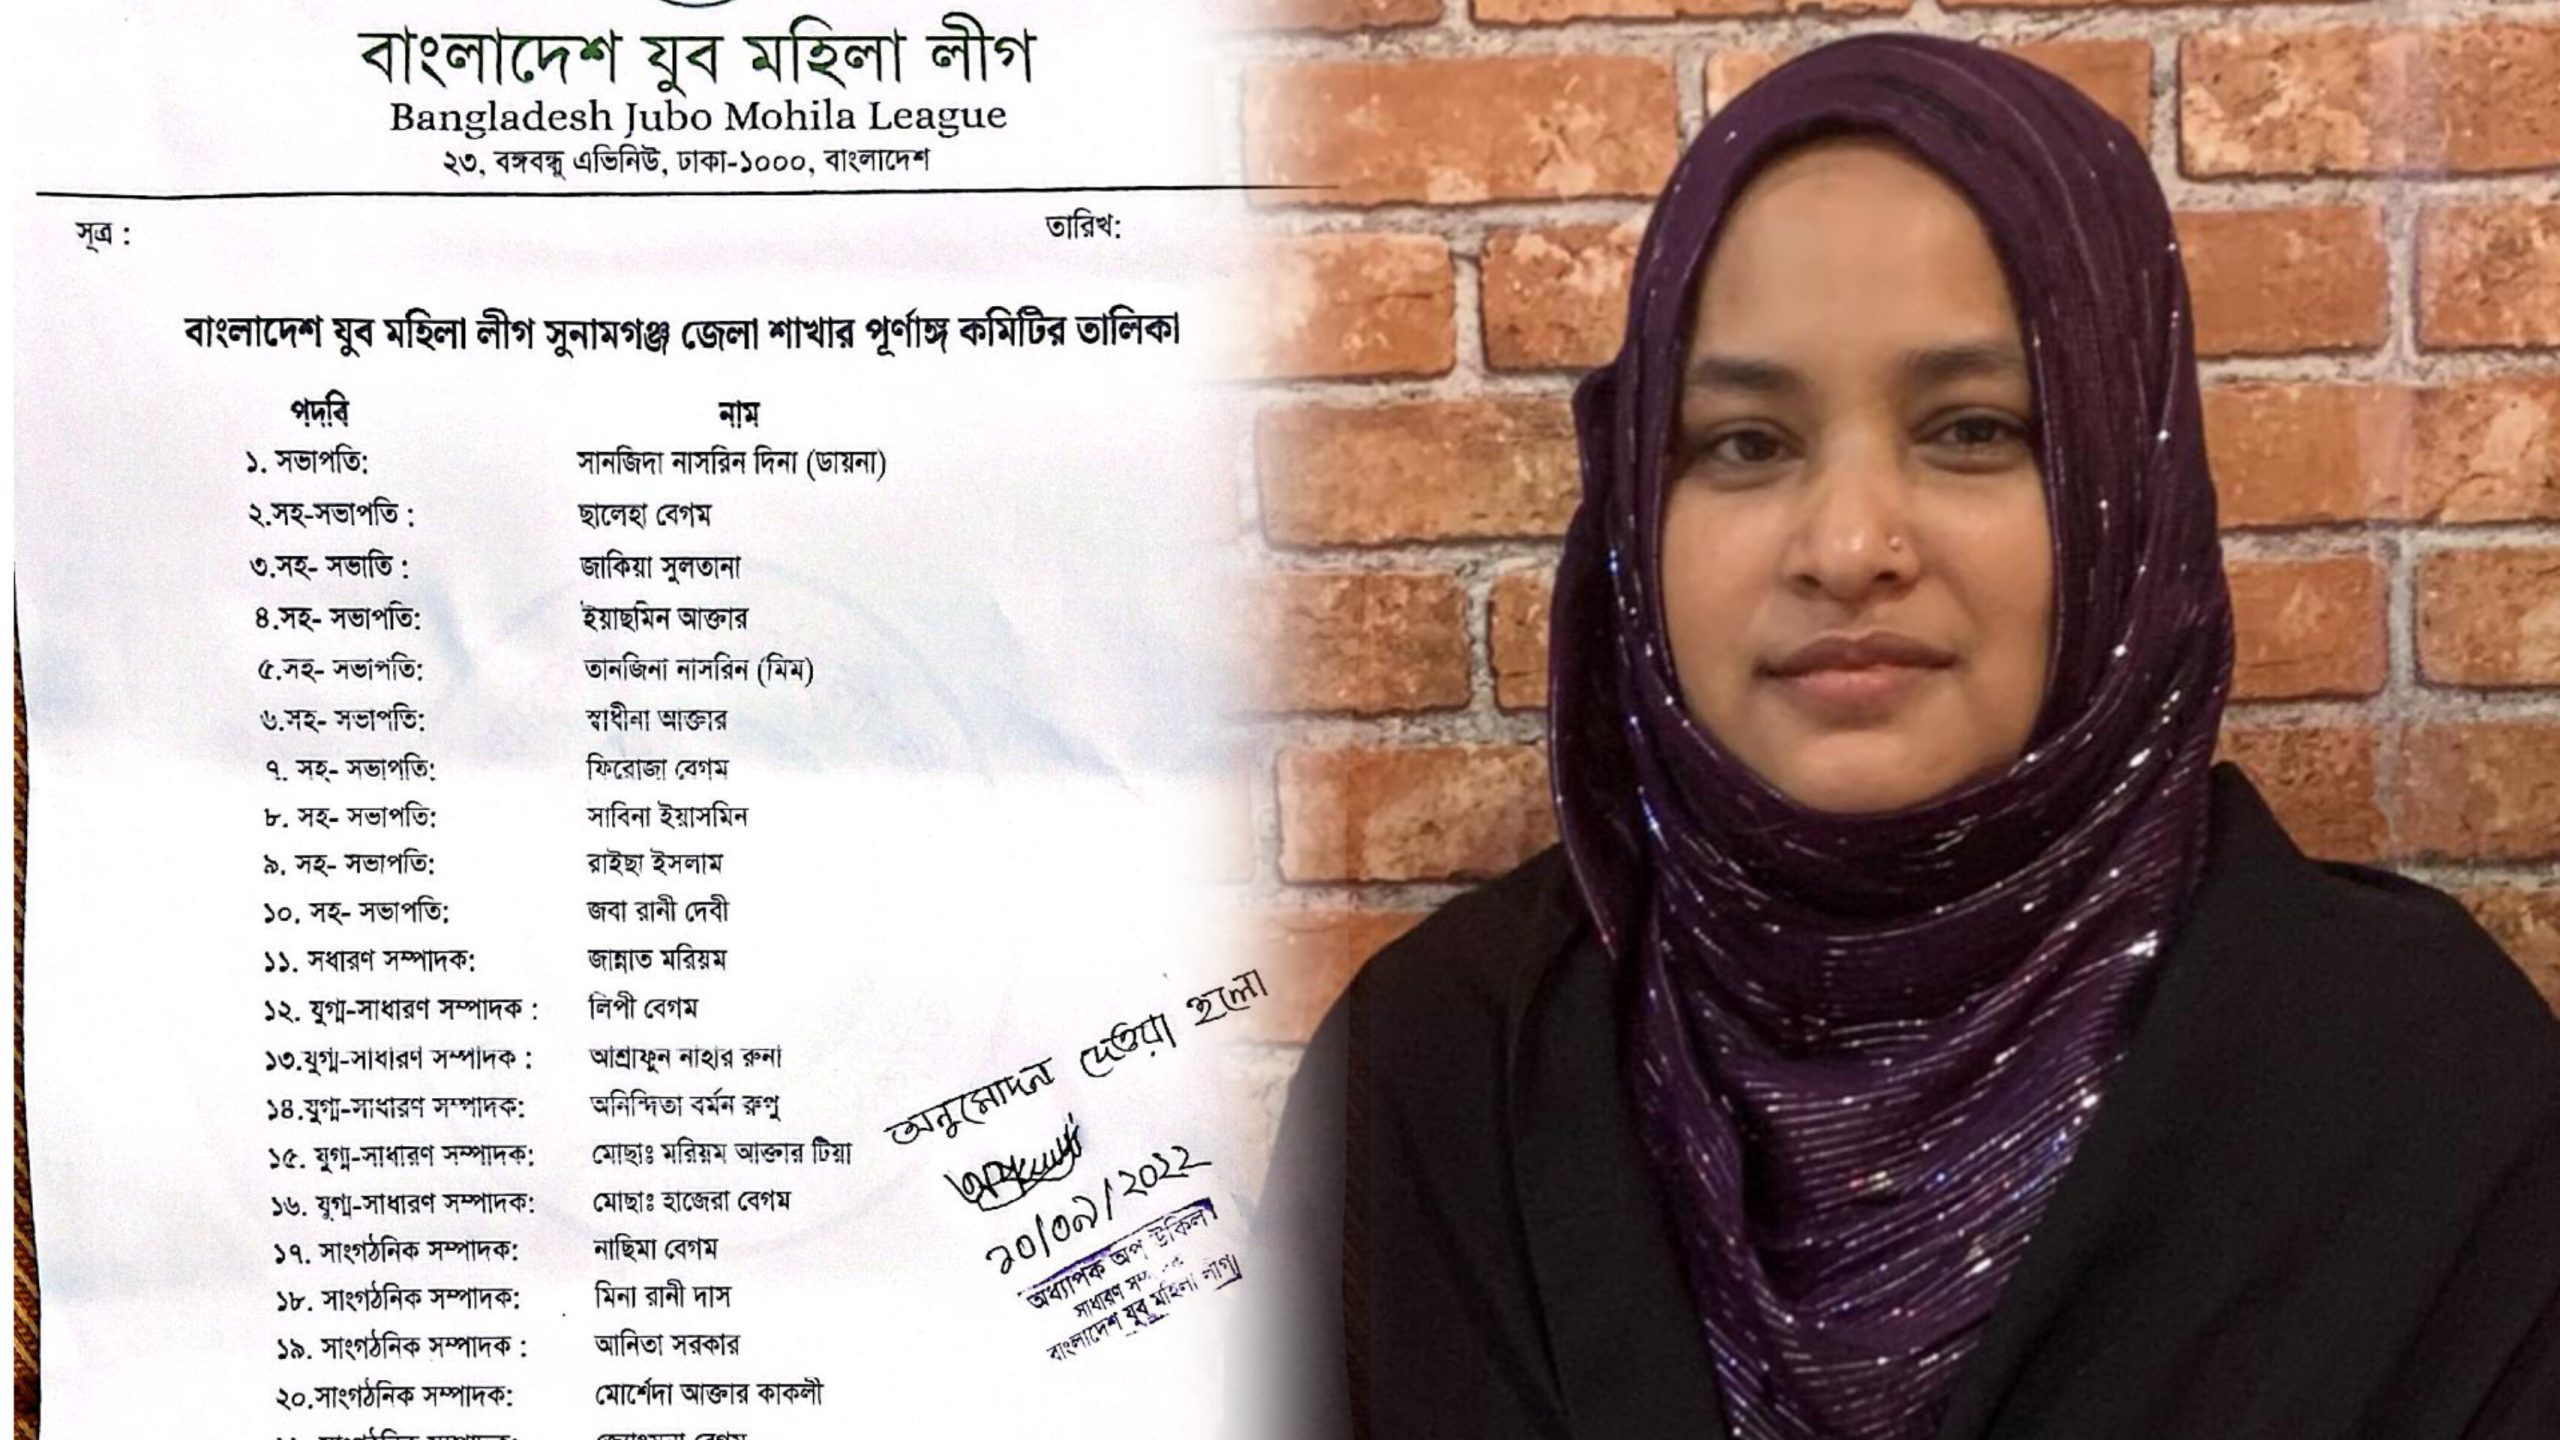 বাংলাদেশ যুব মহিলা লীগ
Bangladesh Jubo Mohila League
২৩, বঙ্গবন্ধু এভিনিউ, ঢাকা-১০০০, বাংলাদেশ
সূত্র : তারিখ:
বাংলাদেশ যুব মহিলা লীগ সুনামগঞ্জ জেলা শাখার পূর্ণাঙ্গ কমিটির তালিকা
পদবি নাম
১. সভাপতি: সানজিদা নাসরিন দিনা (ডায়না)
২.সহ-সভাপতি : ছালেহা বেগম
৩.সহ- সভাতি : জাকিয়া সুলতানা
৪.সহ- সভাপতি: ইয়াছমিন আক্তার
৫.সহ- সভাপতি: তানজিনা নাসরিন (মিম)
৬.সহ- সভাপতি: স্বাধীনা আক্তার
৭. সহ- সভাপতি: ফিরোজা বেগম
৮. সহ- সভাপতি: সাবিনা ইয়াসমিন
৯. সহ- সভাপতি: রাইছা ইসলাম
১০. সহ- সভাপতি: জবা রানী দেবী
১১. সধারণ সম্পাদক: জান্নাত মরিয়ম
১২. যুগ্ম-সাধারণ সম্পাদক : লিপী বেগম
১৩.যুগ্ম-সাধারণ সম্পাদক : আশ্রাফুন নাহার রুনা
১৪.যুগ্ম-সাধারণ সম্পাদক: অনিন্দিতা বর্মন রুপু
১৫. যুগ্ম-সাধারণ সম্পাদক: মোছাঃ মরিয়ম আক্তার টিয়া
১৬. যুগ্ম-সাধারণ সম্পাদক: মোছাঃ হাজেরা বেগম
১৭. সাংগঠনিক সম্পাদক: নাছিমা বেগম
১৮. সাংগঠনিক সম্পাদক: মিনা রানী দাস
১৯. সাংগঠনিক সম্পাদক : আনিতা সরকার
২০.সাংগঠনিক সম্পাদক: মোর্শেদা আক্তার কাকলী
অনুমোদন দেওয়া হলো
২০/০৯/২০২২
অধ্যাপক অপু উকিল
সাধারণ
বাংলাদেশ যুব মহিলা লীগ